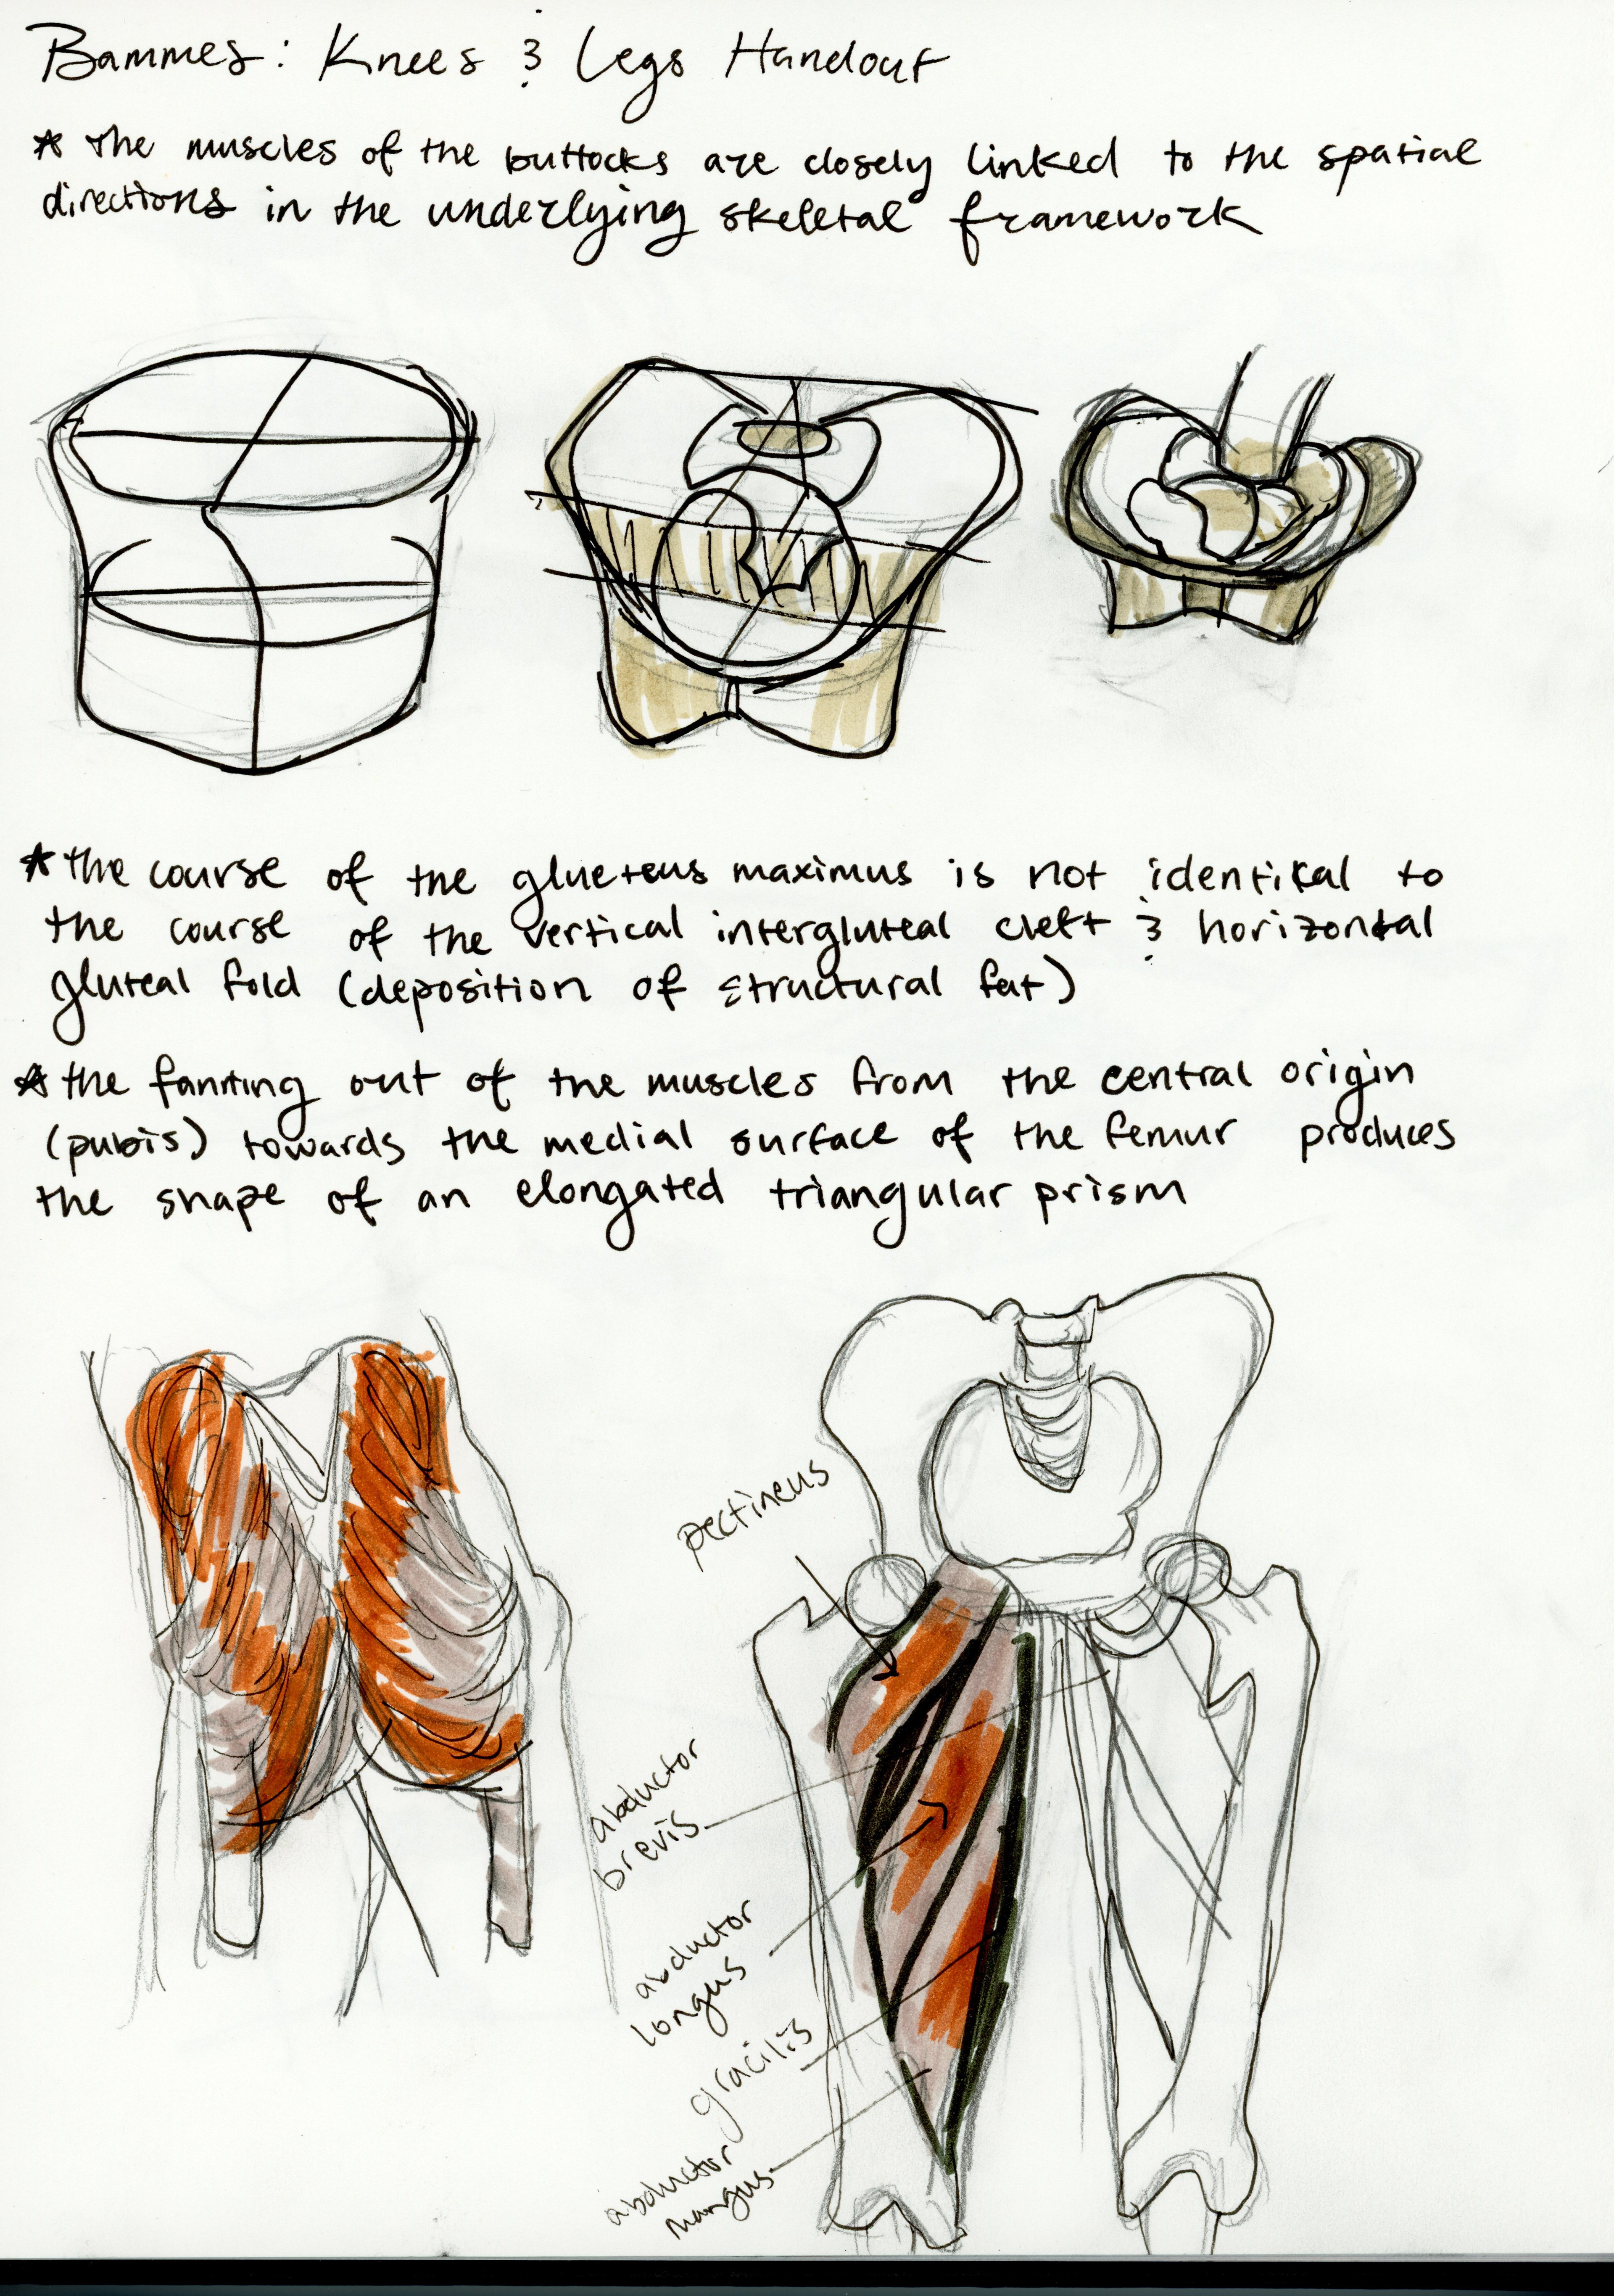 Bammes: Knees & Legs Handout
* the muscles of the buttocks are closely linked to the spatial
directions in the underlying skeletal framework
* the course of the glueteus maximus is not identikal to
the course of the vertical intergluteal cleft & horizontal
gluteal fold (deposition of structural fat)
* the fanning out of the muscles from the central origin
(pubis) towards the medial surface of the femur produces
the shape of an elongated triangular prism
pectineus
abductor
brevis
abductor
longus
gracilis
abductor
mangus